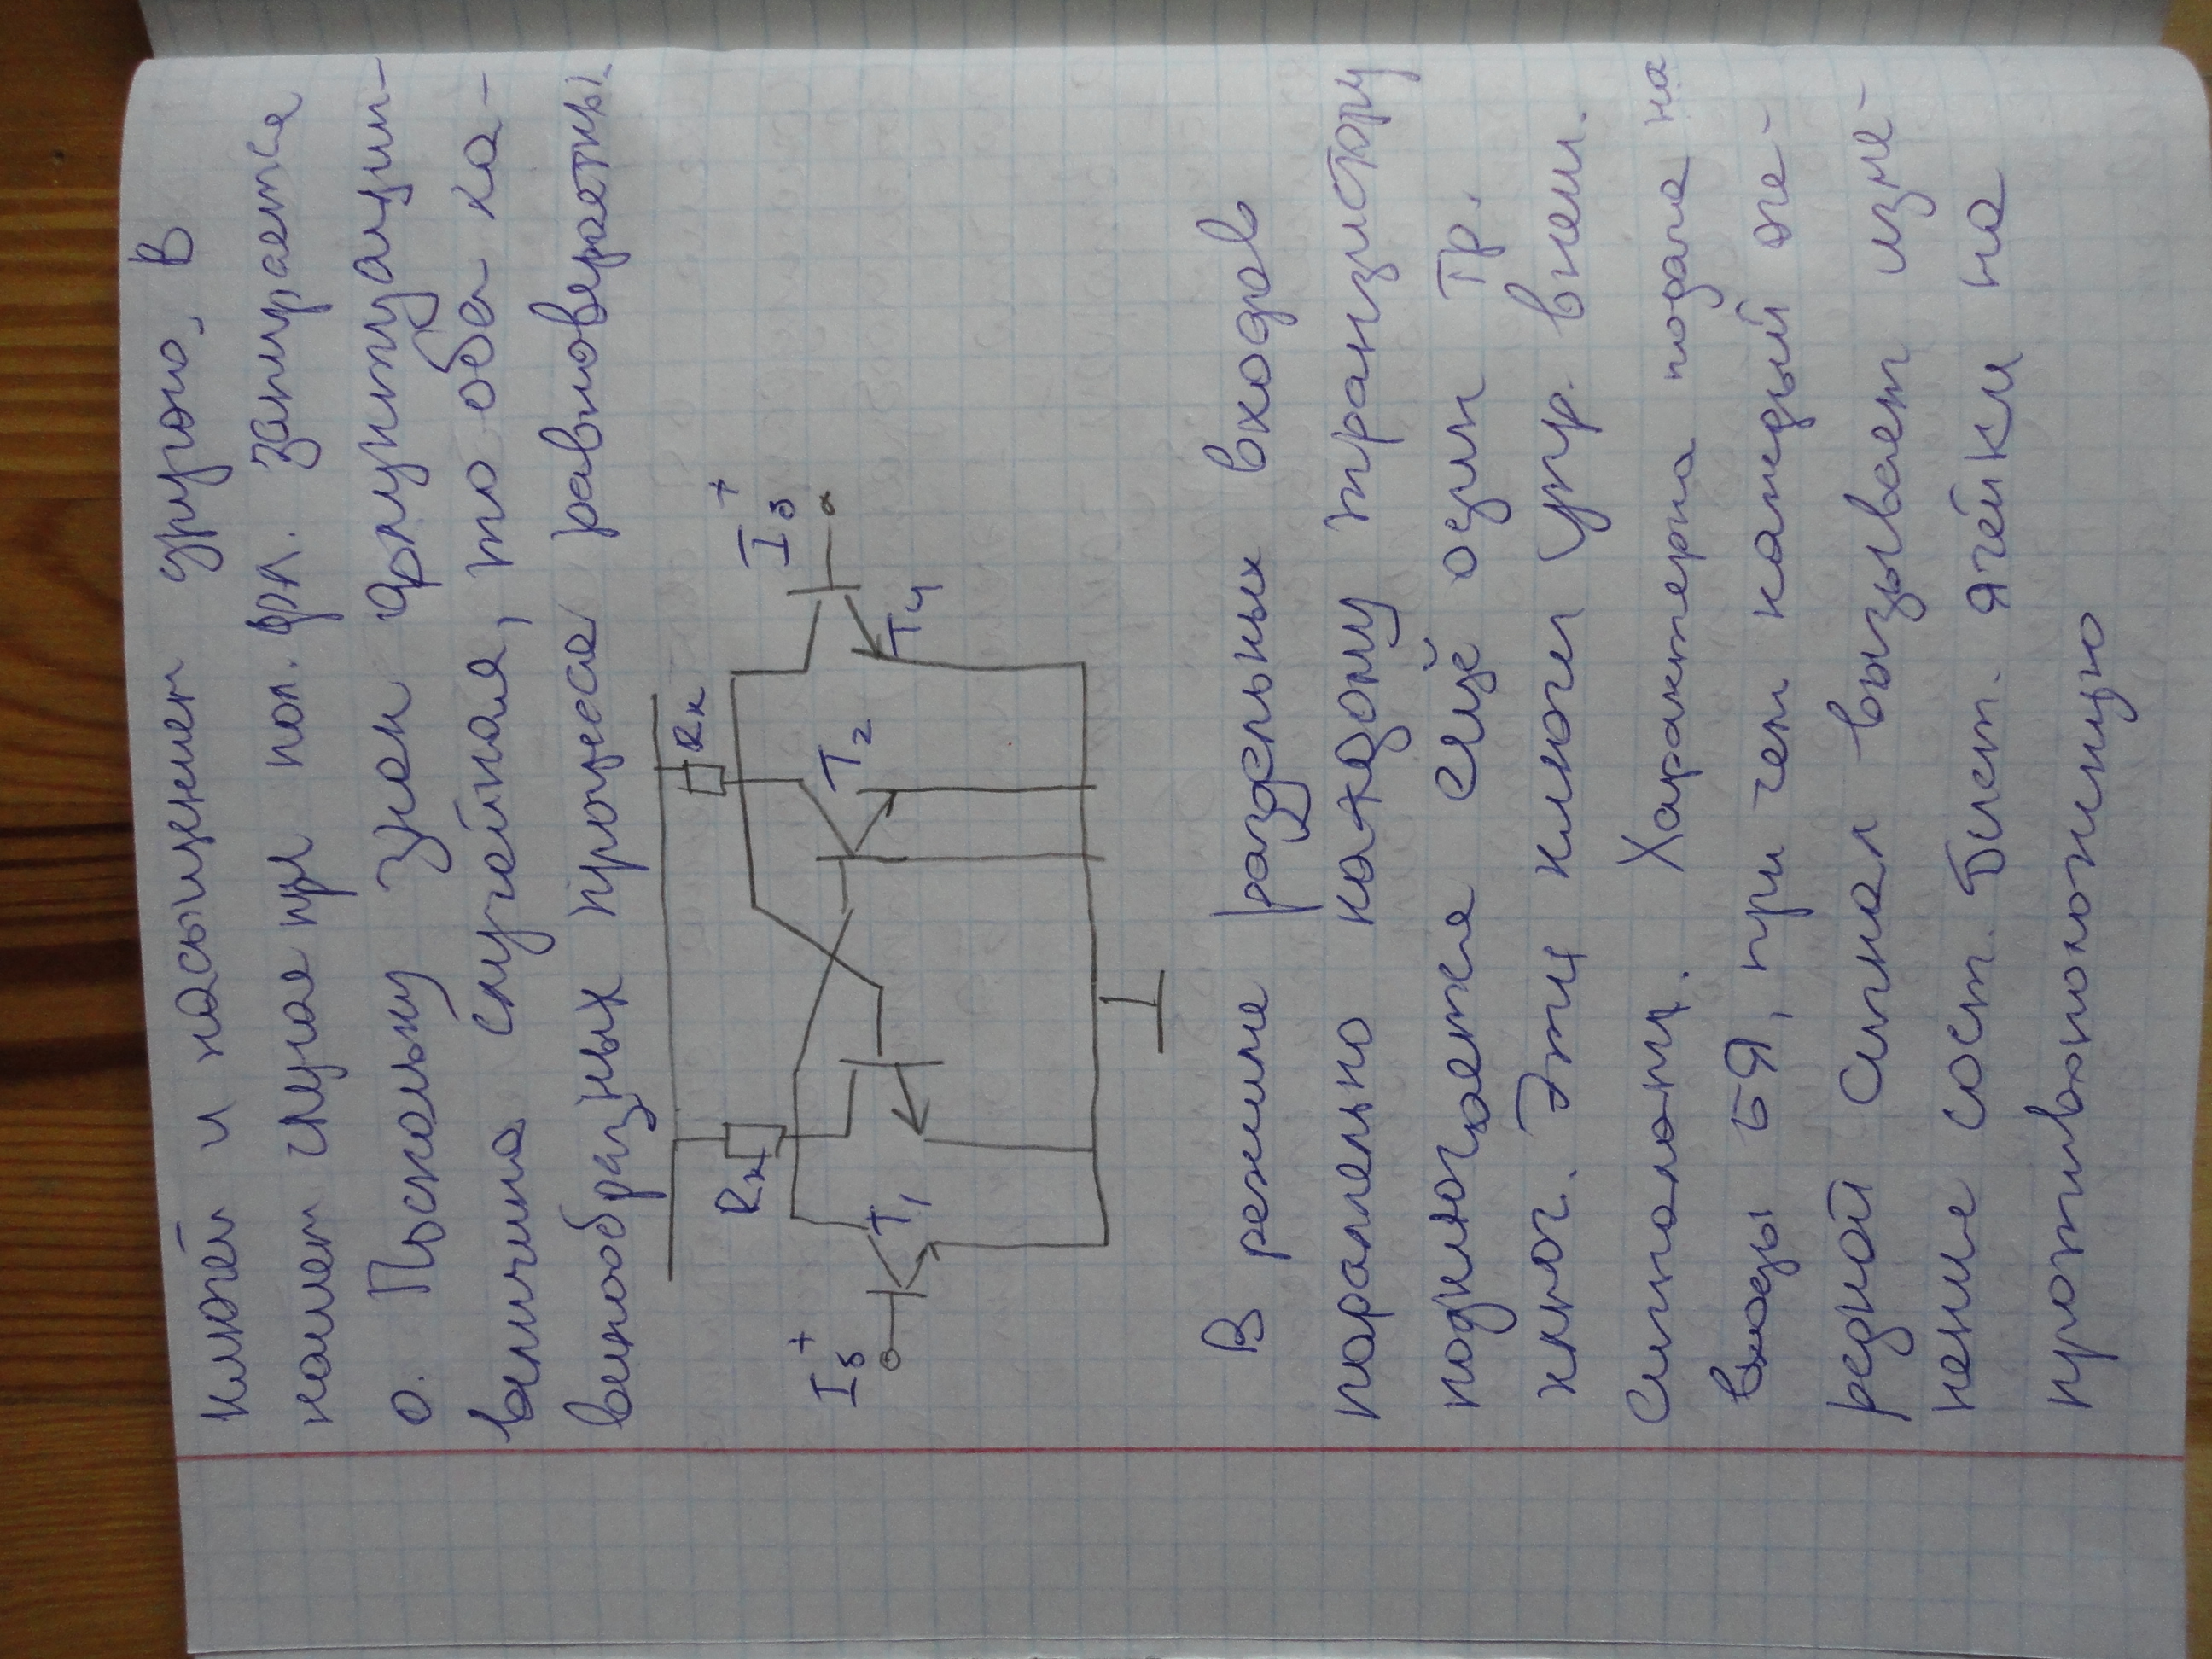 ключей и насыщением другого. В
нашем случае при пол. фл. запирается
0. Поскольку знак флуктуации-
величина случайная, то оба ла-
винообразных процесса равновероятны.
Rк
Rк
Iб+
Iб+
T1
T2
T4
В режиме раздельных входов
паралельно каждому транзистору
подключается ещё один Тр.
ключ. Эти ключи упр. внеш.
сигналом. Характерна подача на
входы БЯ, при чем каждый оче-
редной сигнал вызывает изме-
нение сост. бист. ячейки на
противоположную